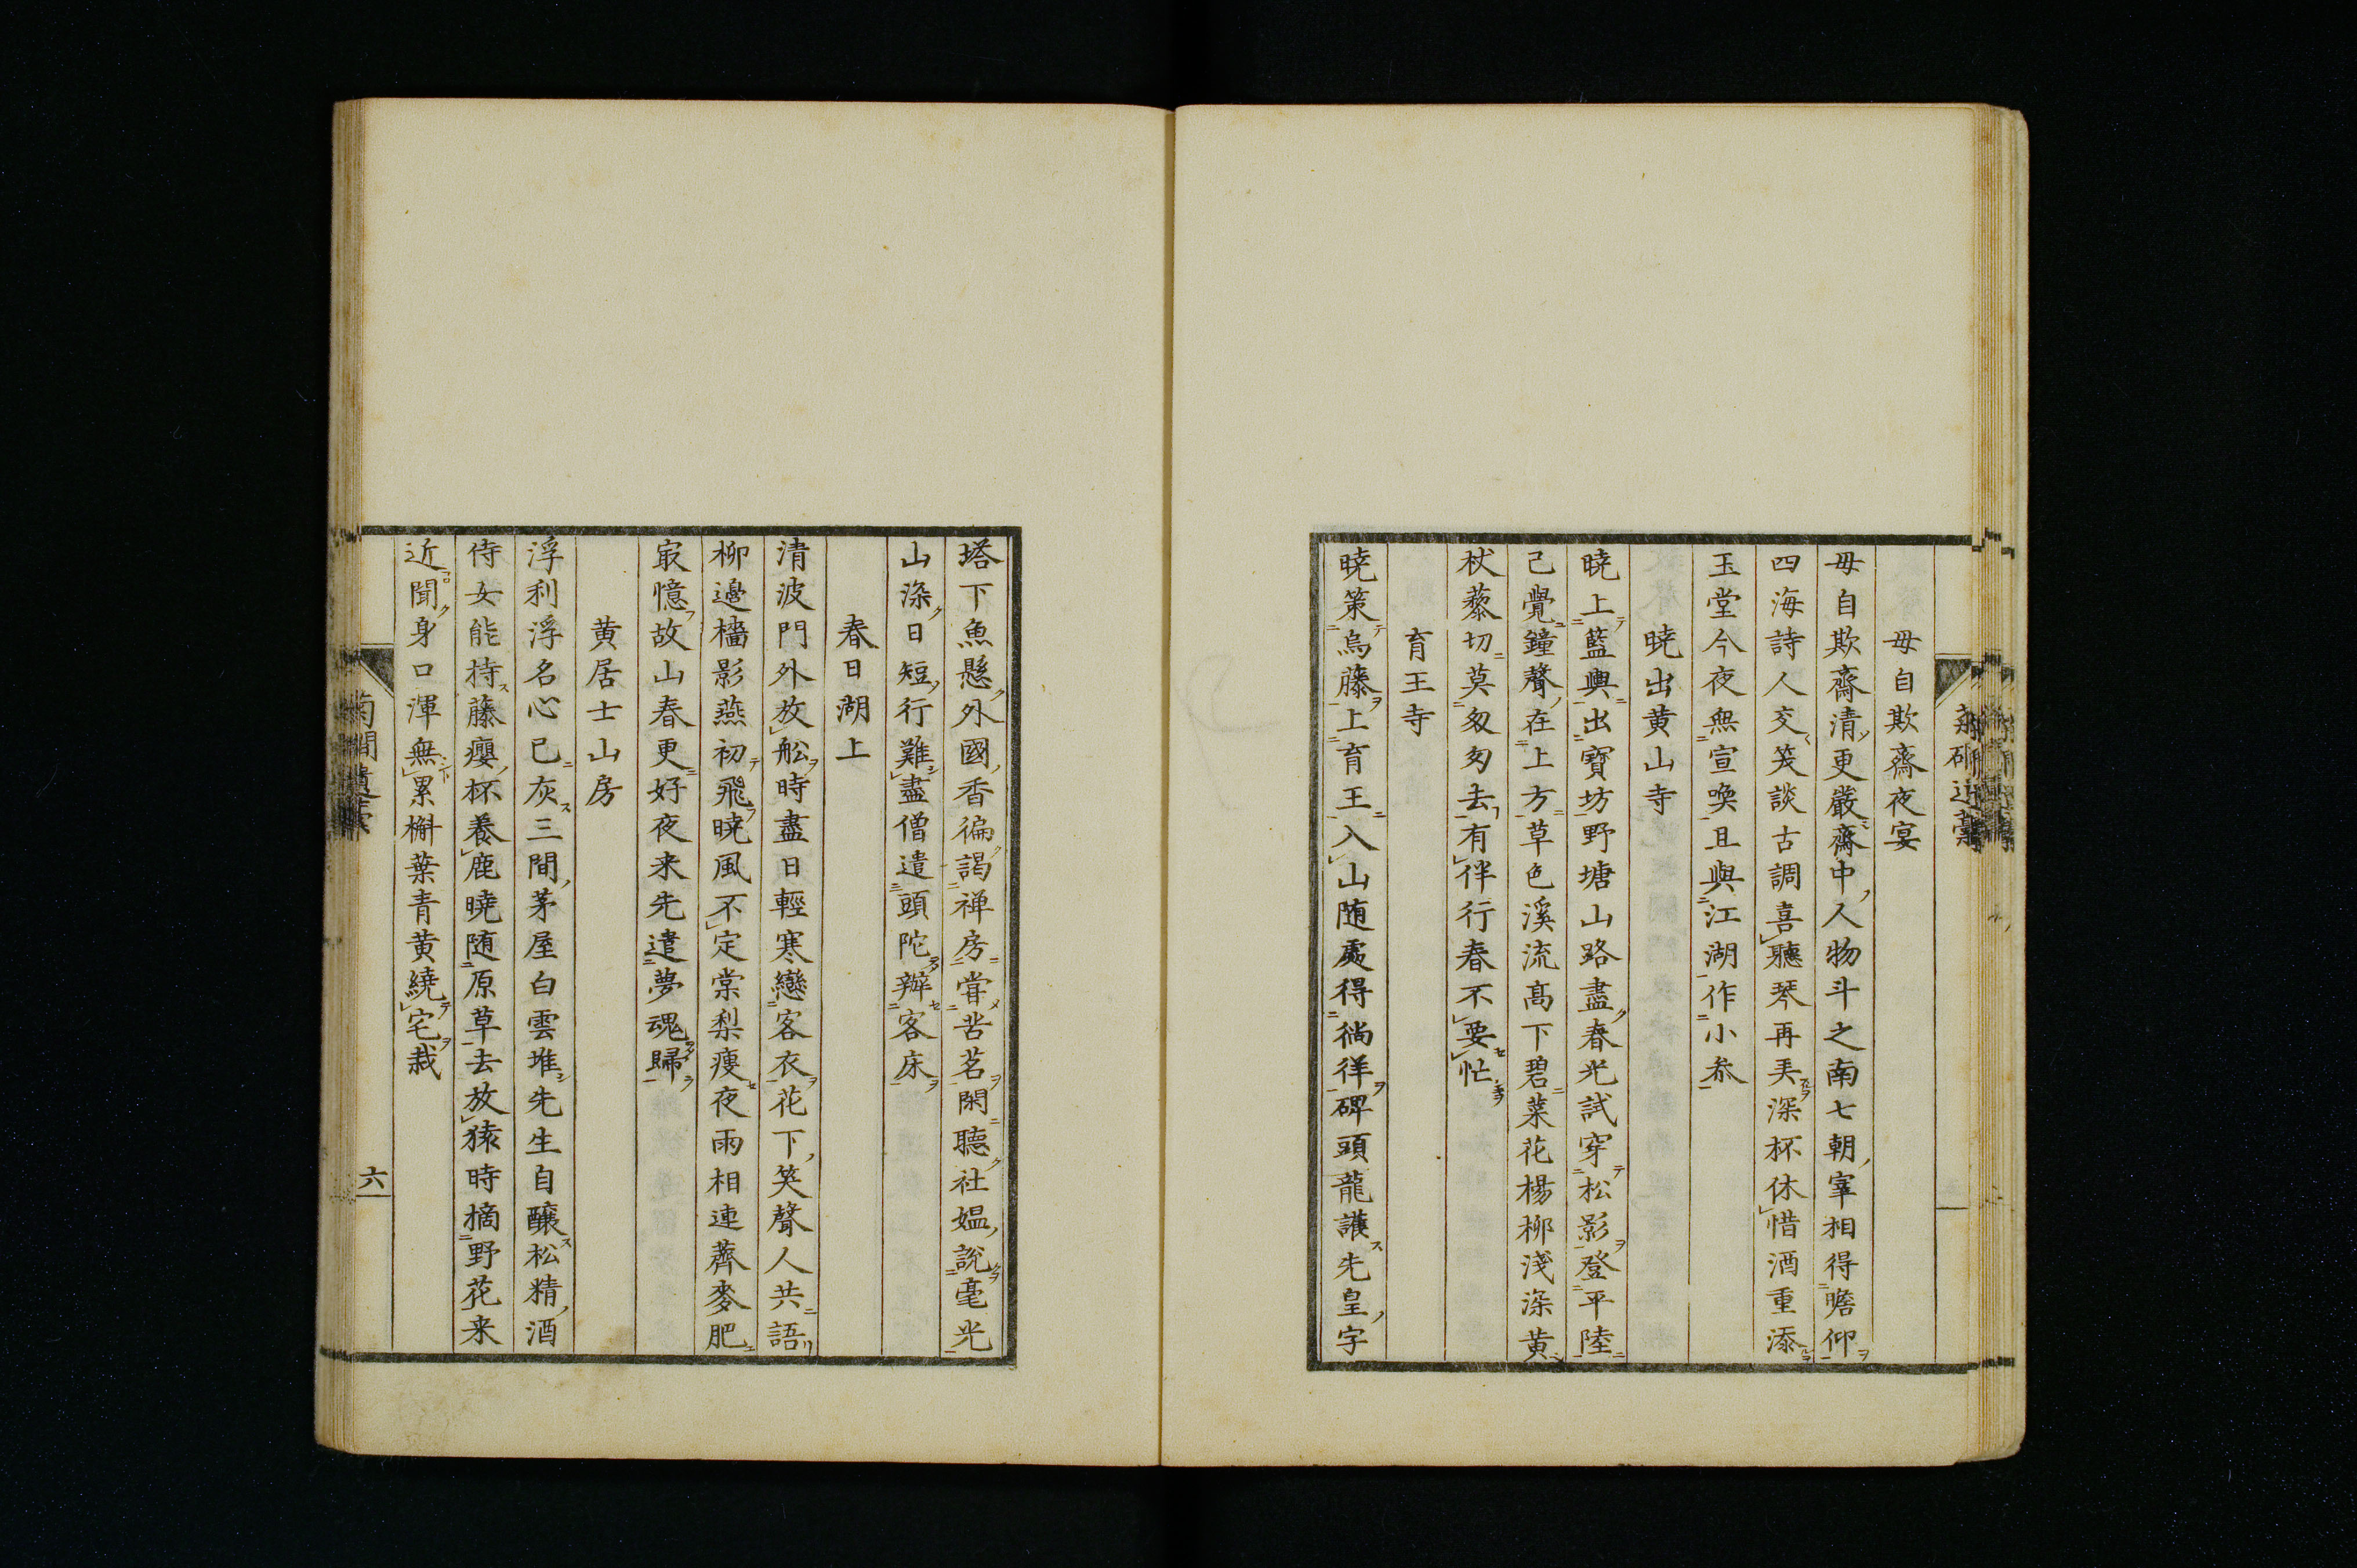 毋自欺齋夜宴
毋自欺齋清更嚴齋中人物斗之南七朝宰相得瞻仰
四海詩人交笑談古調喜聽琴再弄深杯休惜酒重添
玉堂今夜無宣喚且與江湖作小參
曉出黄山寺
曉上藍輿出寶坊野塘山路盡春光試穿松影登平陸
已覺鐘聲在上方草色溪流高下碧菜花楊柳淺深黄
杖藜切莫匆匆去有伴行春不要忙
育王寺
曉策烏藤上育王入山随處得徜徉碑頭龍護先皇字
塔下魚懸外國香徧謁禅房甞苦茗閑聽社媪說毫光
山深日短行難盡僧遣頭陀辦客床
春日湖上
清波門外放舩時盡日輕寒戀客衣花下笑聲人共語
柳邊檣影燕初飛曉風不定棠梨瘦夜雨相連薺麥肥
㝡憶故山春更好夜来先遣夢魂歸
黄居士山房
浮利浮名心已灰三間茅屋白雲堆先生自醸松精酒
侍女能持藤癭杯養鹿曉随原草去放猿時摘野花来
近聞身口渾無累槲葉青黄繞宅栽
菊磵遺藁
六